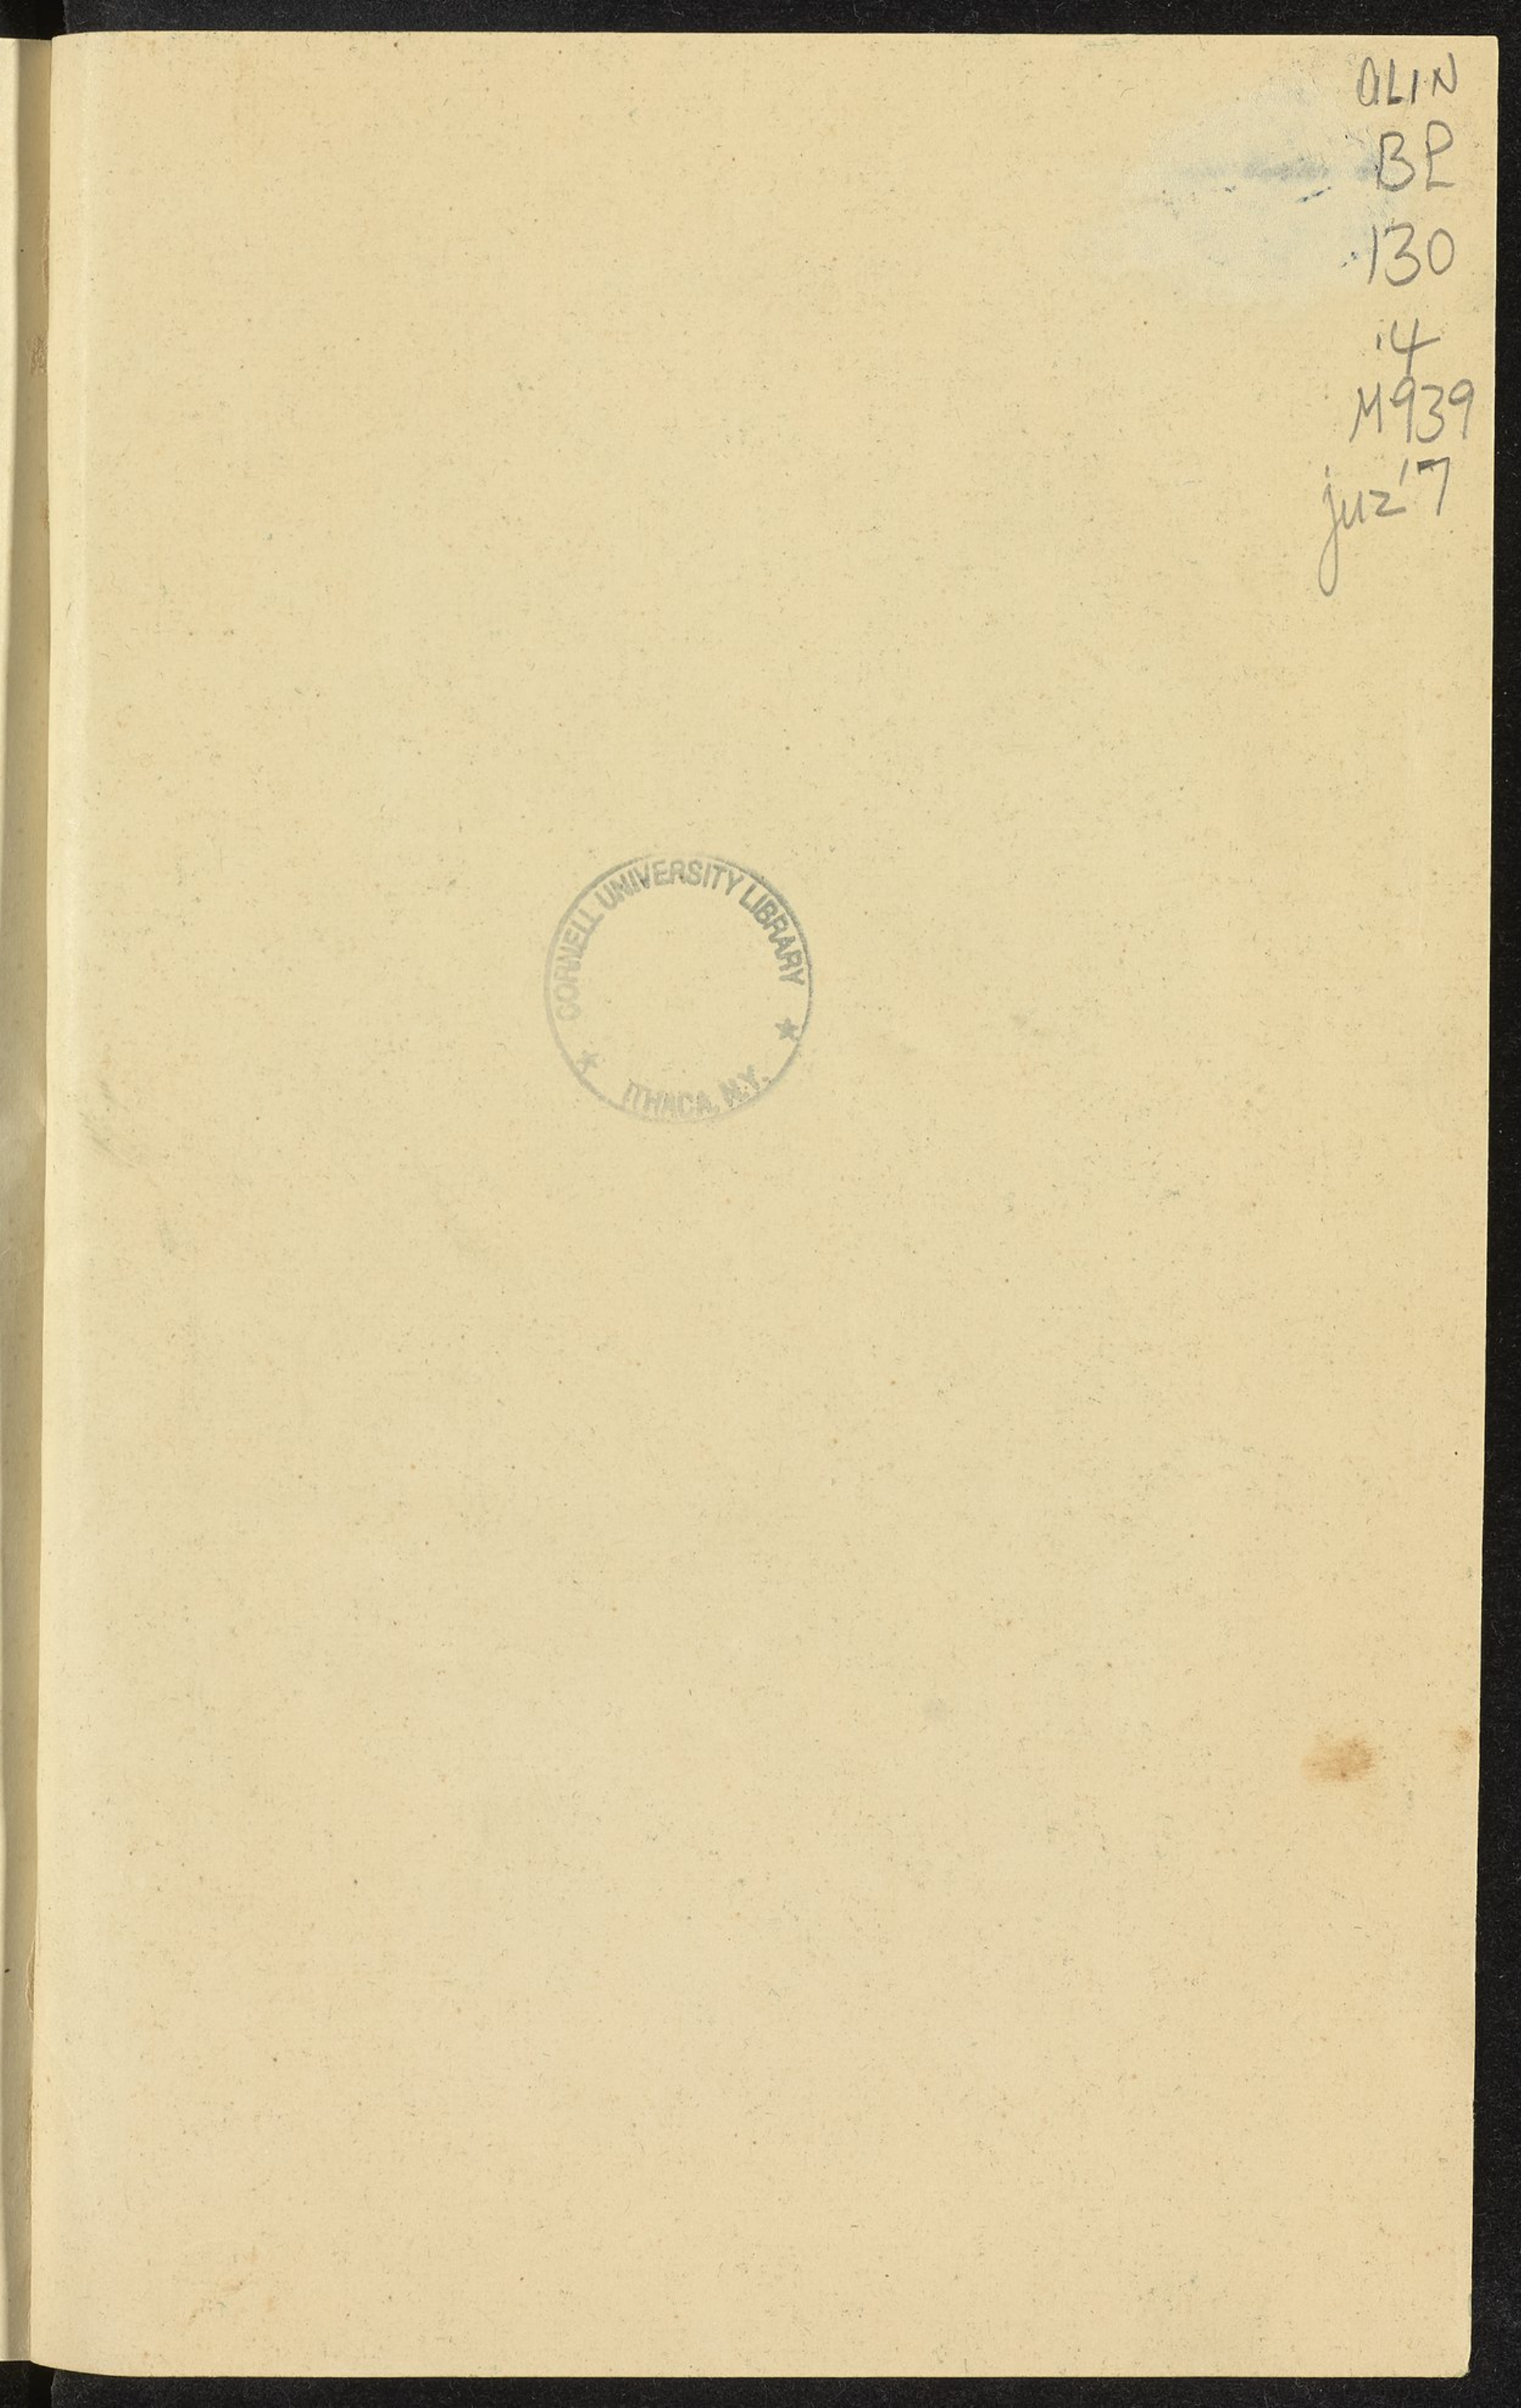 OLIN
BP
130
.4
M939
juz'7
CORNELL UNIVERSITY LIBRARY
ITHACA, N.Y.